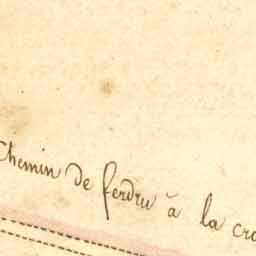 Chemin de ferdru à la cro